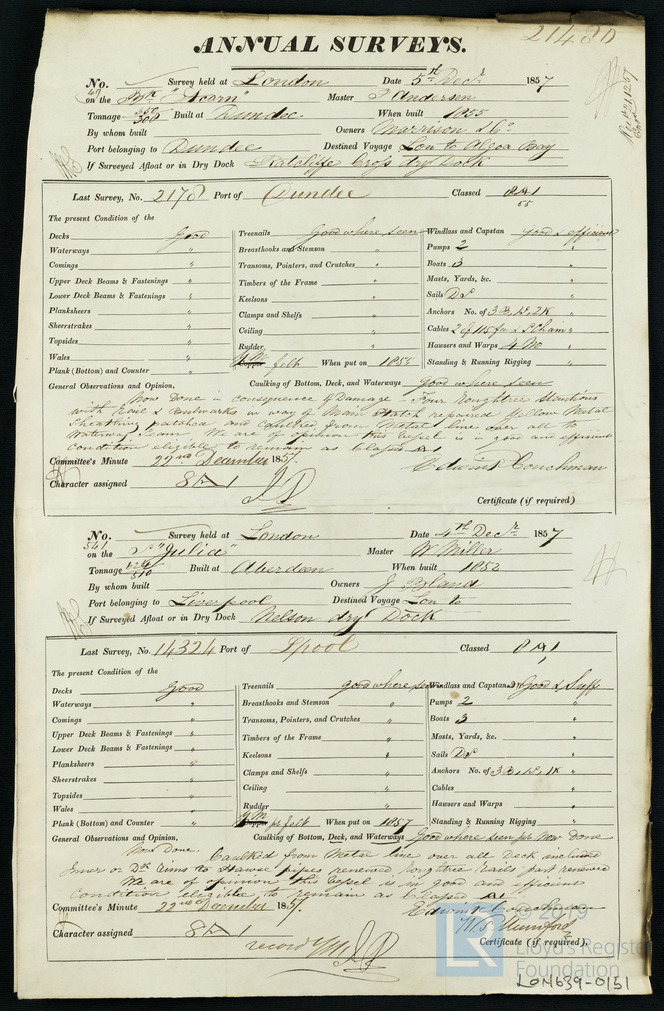 21480
ANNUAL SURVEYS.
No. Survey held at London Date 5th Decr. 1857
on the Bk "Acorn" Master P Andersen
Tonnage 350 300 Built at Dundee When built 1855
By whom built Owners Morrison & Co.
Port belonging to Dundee Destined Voyage Lon to Algoa Bay
If Surveyed Afloat or in Dry Dock Ratcliffe Cross dry Dock
Last Survey, No. 2178 Port of Dundee Classed 8A1
55
The present Condition of the
Decks Good Treenails Good where seen Windlass and Capstan Good & efficient
Waterways " Breasthooks and Stemson " Pumps 2 "
Comings " Transoms, Pointers, and Crutches " Boats 3 "
Upper Deck Beams & Fastenings " Timbers of the Frame " Masts, Yards, &c. "
Lower Deck Beams & Fastenings " Keelsons " Sails Do "
Planksheers " Clamps and Shelfs " Anchors No. of 3 B, 1 S, 2 K "
Sheerstrakes " Ceiling " Cables 2 of 115 fms & S Cham "
Topsides " Rudder " Hawsers and Warps 4 No "
Wales " YM felt When put on 1855 Standing & Running Rigging "
Plank (Bottom) and Counter " Caulking of Bottom, Deck, and Waterways Good where seen
General Observations and Opinion,
Now Done in consequence of Damage - Four Roughtree Stantions
with Rail & Bulwarks in way of Main Hatch repaired Yellow Metal
Sheathing patched and Caulked from Metal line over all to
Waterway Seam We are of opinion this vessel is in good and efficient
Condition eligible to remain as Classed 8A1
Committee's Minute 22nd December 1857. Edwin Couchman
Character assigned 8A1
Certificate (if required)
No. Survey held at London Date 4th Decr. 1857
541
on the S "Julia" Master W Miller
Tonnage 624 510 Built at Aberdeen When built 1852
By whom built Owners J Bland
Port belonging to Liverpool Destined Voyage Lon to
If Surveyed Afloat or in Dry Dock Nelson dry Dock
Last Survey, No. 14324 Port of Lpool Classed 8A1
The present Condition of the
Decks Good Treenails good where seen Windlass and Capstan Good & Suff
Waterways " Breasthooks and Stemson " Pumps 2 "
Comings " Transoms, Pointers, and Crutches " Boats 3 "
Upper Deck Beams & Fastenings " Timbers of the Frame " Masts, Yards, &c. "
Lower Deck Beams & Fastenings " Keelsons " Sails Do "
Planksheers " Clamps and Shelfs " Anchors No. of 3 B, 1 S, 1 K "
Sheerstrakes " Ceiling " Cables "
Topsides " Rudder " Hawsers and Warps "
Wales " YM pr felt When put on 1857 Standing & Running Rigging "
Plank (Bottom) and Counter " Caulking of Bottom, Deck, and Waterways Good where seen pt Now done
General Observations and Opinion,
Now Done. Caulked from Metal line over all Deck included
Inner or Dk Rims to Hawse pipes renewed roughtree Rails part renewed
We are of opinion this vessel is in good and efficient
Condition eligible to remain as Classed 8A1
Committee's Minute 22nd December 1857. Edwin Couchman
W. S. Mumford
Character assigned 8A1
record YM
Certificate (if required).
© 2019
Lloyd's Register
Foundation
LON639-0151